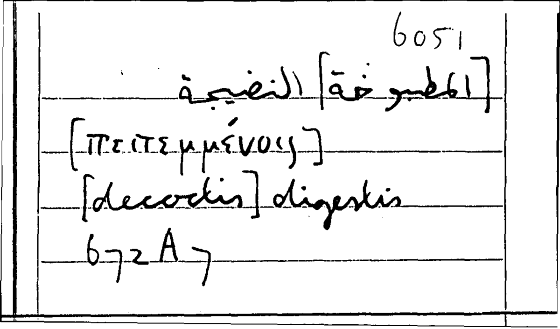 6051
[المطبوخة] النضيجة
[πεπεμμένοις]
[decoctis] digestis
672 A 7